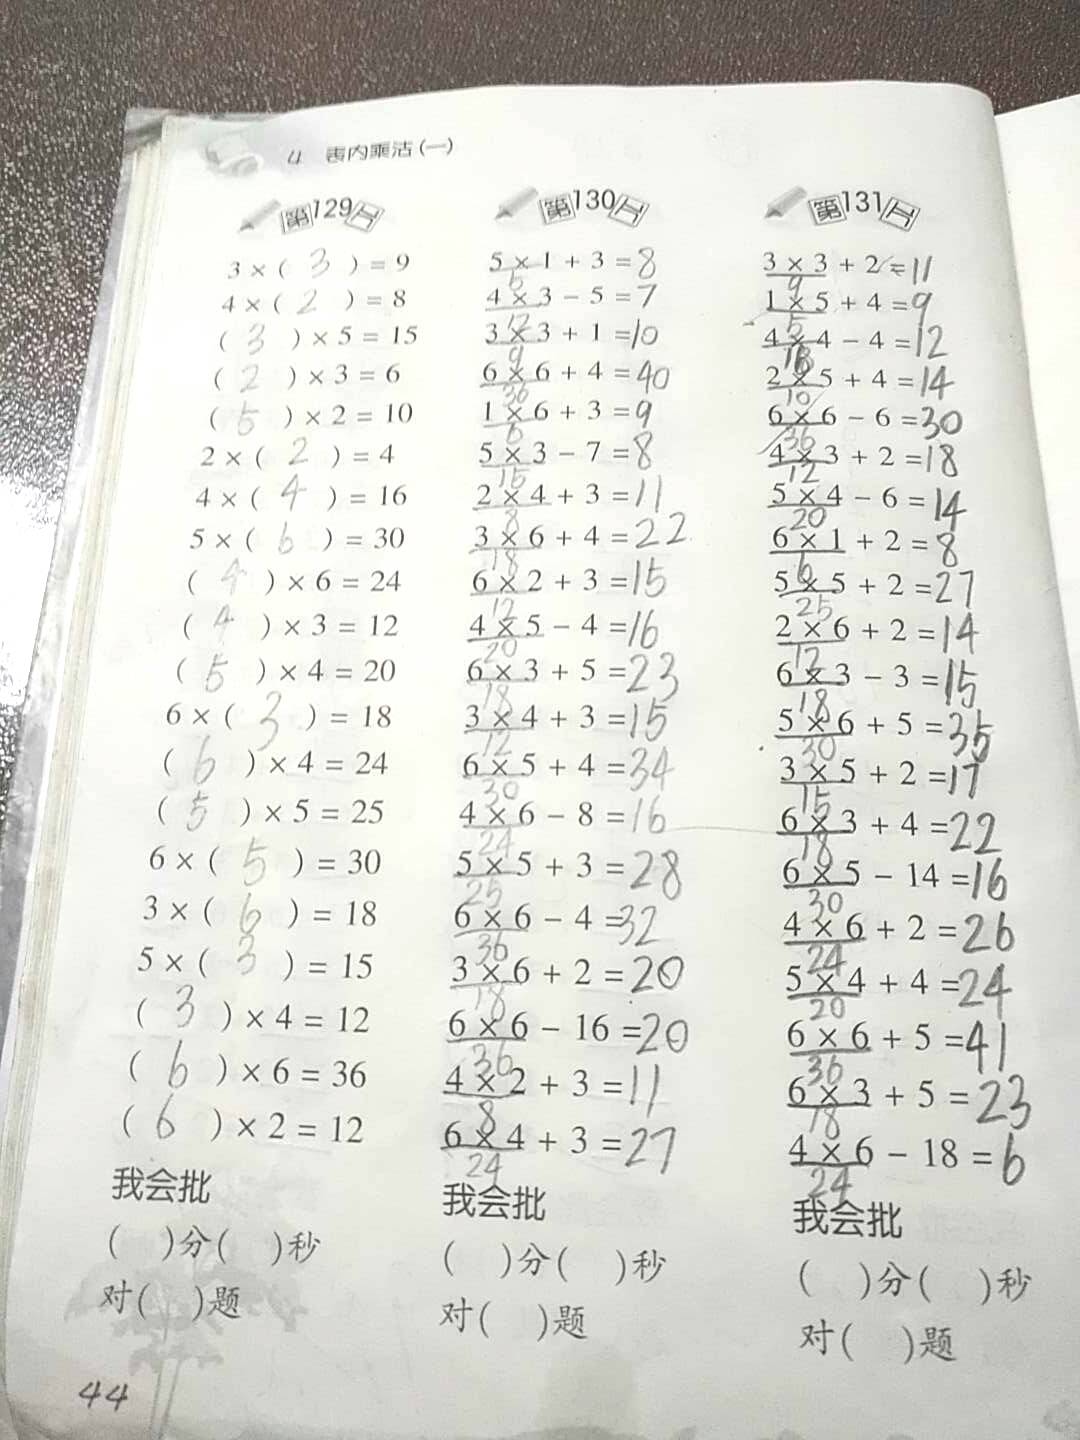 4 表内乘法(一)
第129天
3 × ( 3 ) = 9
4 × ( 2 ) = 8
( 3 ) × 5 = 15
( 2 ) × 3 = 6
( 5 ) × 2 = 10
2 × ( 2 ) = 4
4 × ( 4 ) = 16
5 × ( 6 ) = 30
( 4 ) × 6 = 24
( 4 ) × 3 = 12
( 5 ) × 4 = 20
6 × ( 3 ) = 18
( 6 ) × 4 = 24
( 5 ) × 5 = 25
6 × ( 5 ) = 30
3 × ( 6 ) = 18
5 × ( 3 ) = 15
( 3 ) × 4 = 12
( 6 ) × 6 = 36
( 6 ) × 2 = 12
我会批
( )分( )秒
对( )题
第130天
5 × 1 + 3 = 8
5
4 × 3 - 5 = 7
12
3 × 3 + 1 = 10
9
6 × 6 + 4 = 40
36
1 × 6 + 3 = 9
6
5 × 3 - 7 = 8
15
2 × 4 + 3 = 11
8
3 × 6 + 4 = 22
18
6 × 2 + 3 = 15
12
4 × 5 - 4 = 16
20
6 × 3 + 5 = 23
18
3 × 4 + 3 = 15
12
6 × 5 + 4 = 34
30
4 × 6 - 8 = 16
24
5 × 5 + 3 = 28
25
6 × 6 - 4 = 32
36
3 × 6 + 2 = 20
18
6 × 6 - 16 = 20
36
4 × 2 + 3 = 11
8
6 × 4 + 3 = 27
24
我会批
( )分( )秒
对( )题
第131天
3 × 3 + 2 = 11
9
1 × 5 + 4 = 9
5
4 × 4 - 4 = 12
16
2 × 5 + 4 = 14
10
6 × 6 - 6 = 30
36
4 × 3 + 2 = 18
12
5 × 4 - 6 = 14
20
6 × 1 + 2 = 8
6
5 × 5 + 2 = 27
25
2 × 6 + 2 = 14
12
6 × 3 - 3 = 15
18
5 × 6 + 5 = 35
30
3 × 5 + 2 = 17
15
6 × 3 + 4 = 22
18
6 × 5 - 14 = 16
30
4 × 6 + 2 = 26
24
5 × 4 + 4 = 24
20
6 × 6 + 5 = 41
36
6 × 3 + 5 = 23
18
4 × 6 - 18 = 6
24
我会批
( )分( )秒
对( )题
44